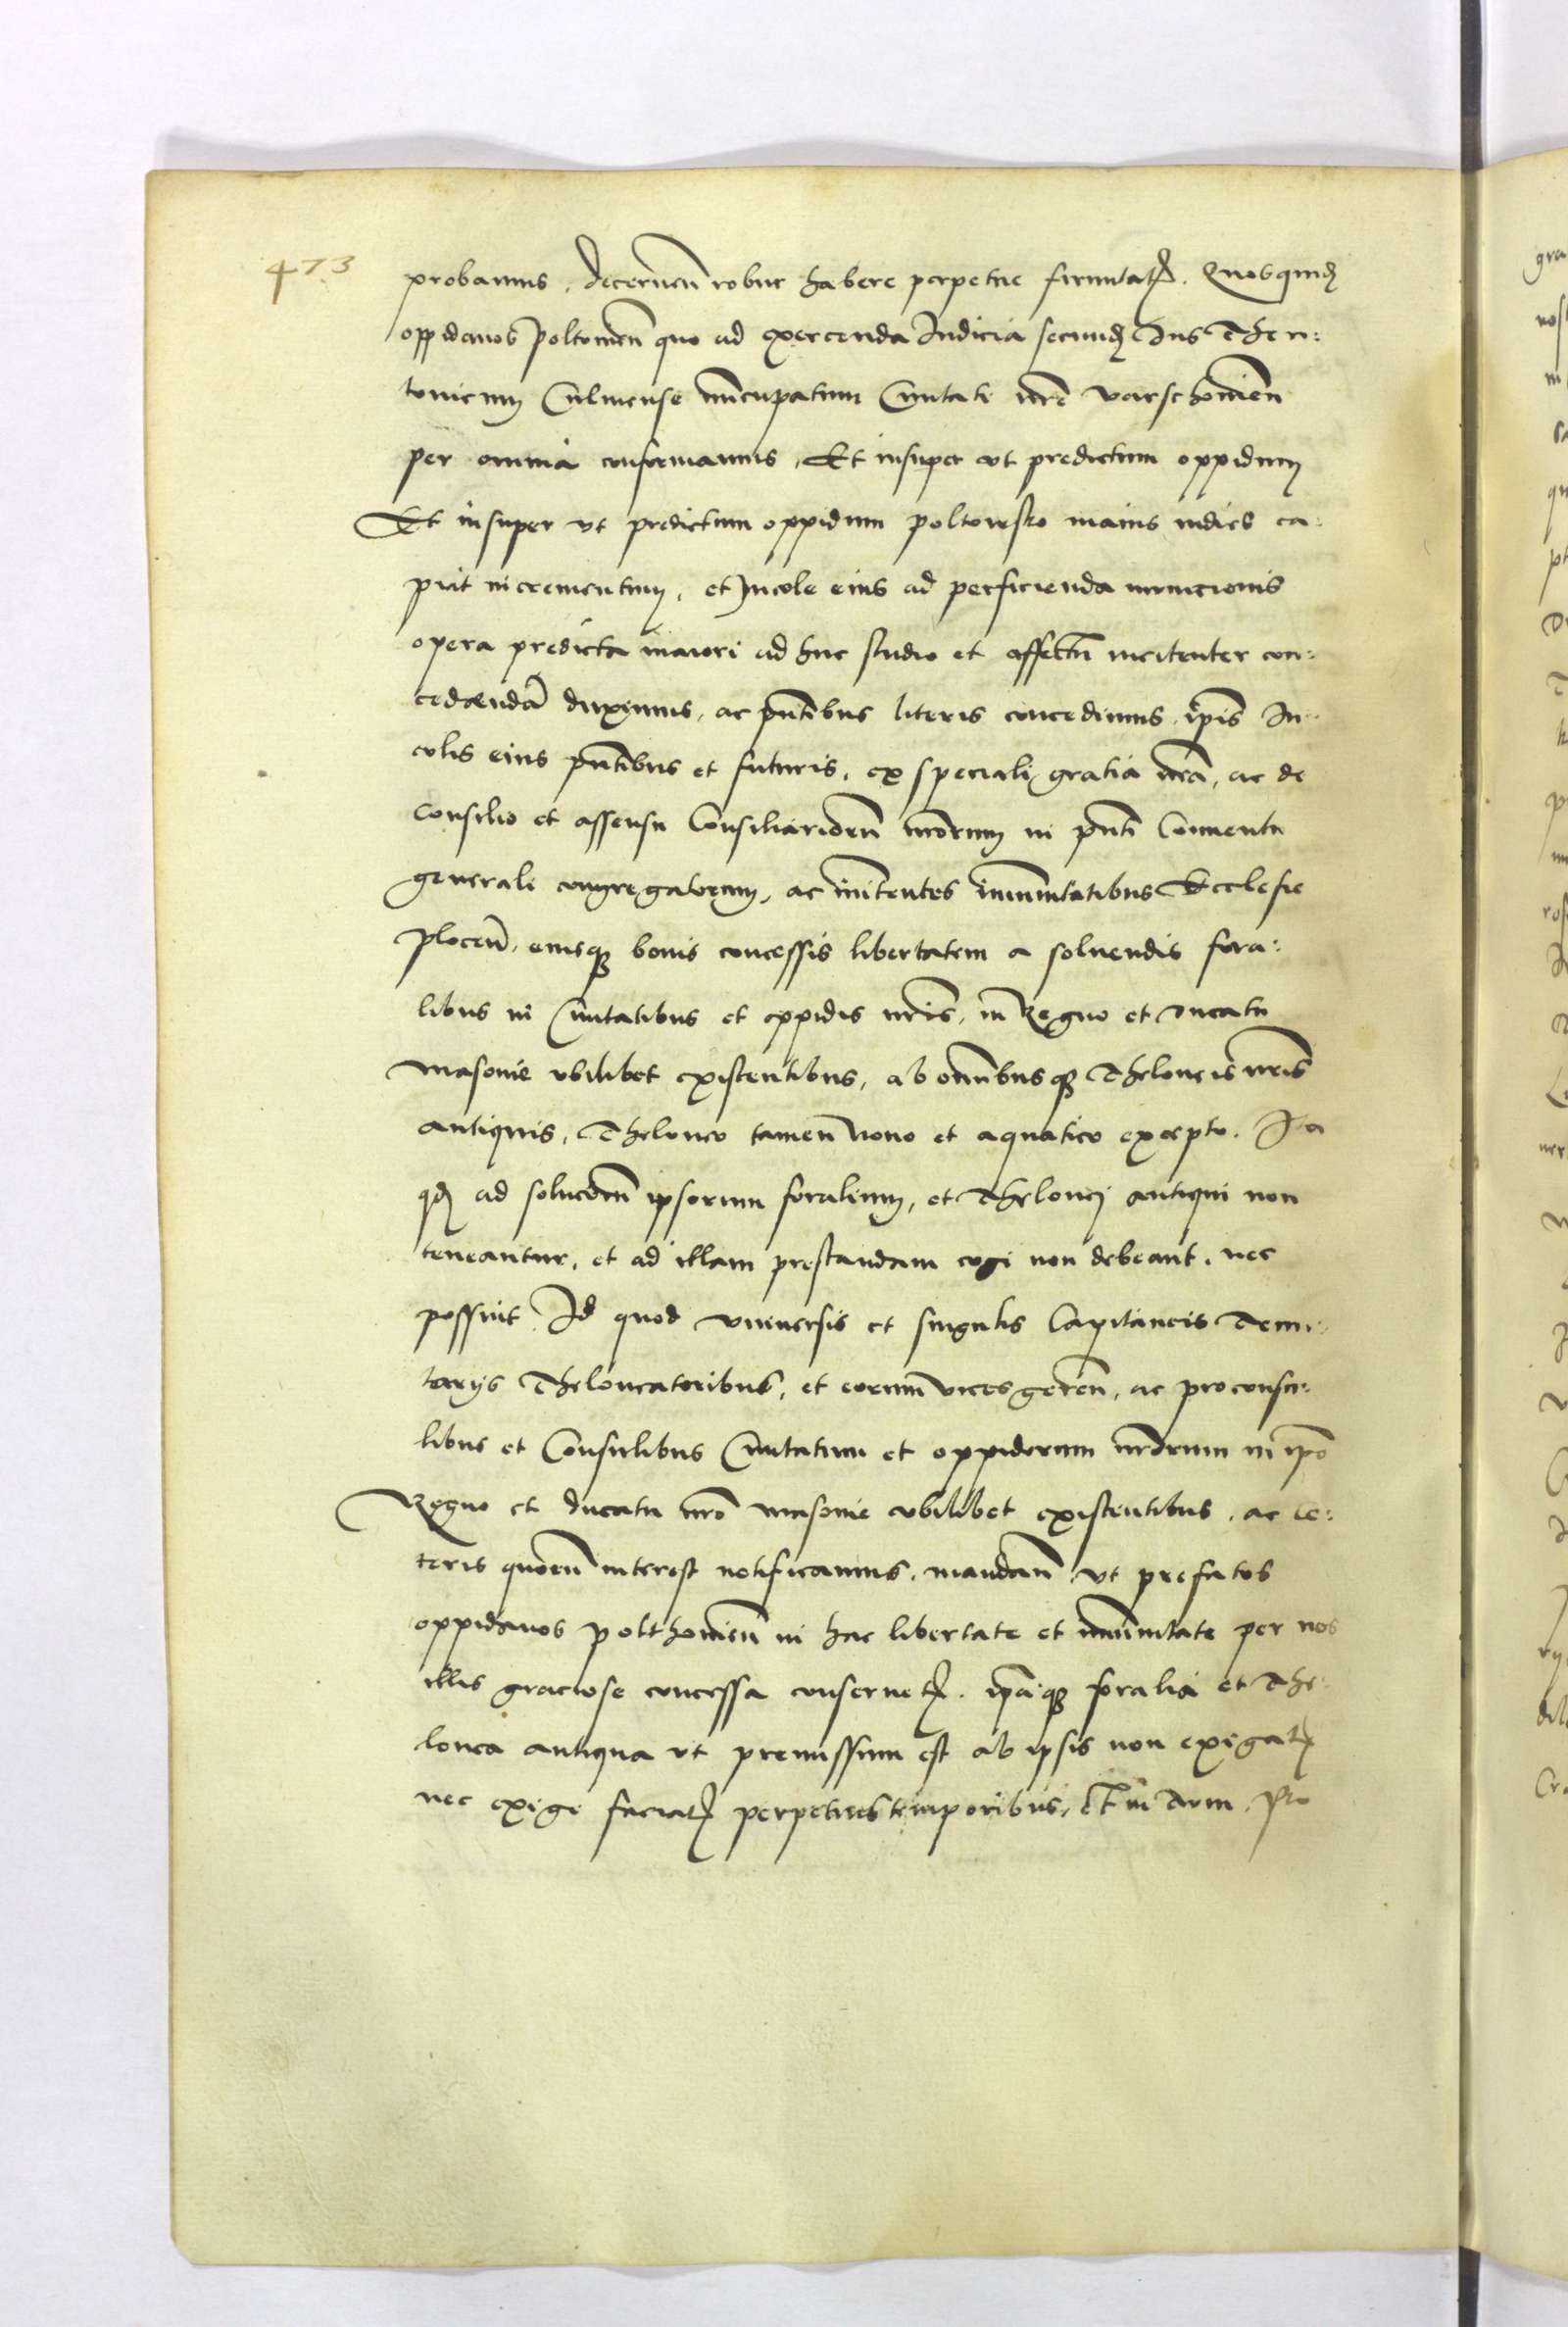 473
probamus, decernen̄ robur habere perpetue firmitatꝭ. Quosquidꝫ
oppidanos Poltouien̄ quo ad exercenda Iudicia secundꝫ Ius Theu:
tonicum Culmense nūcupatum Ciuitati nr̄e Varschouien̄
per omnia conformamus, Et insuper vt predictum oppidum
Et insuper vt predictum oppidum Poltowsko maius indies ca:
piat incrementum, et Incole eius ad perficienda municionis
opera predicta maiori ad huc studio et affectu incitentur con:
cedendā duximus, ac pn̄tibus literis concedimus, ip̄is In:
colis eius pn̄tibus et futuris, ex speciali gratia nr̄a, ac de
consilio et assensu Consiliariorū nr̄orum in pn̄ti Conuentu
generali congregatorum, ac initentes immunitatibus Ecclesie
Plocen̄, eiusqꝫ bonis concessis libertatem a soluendis fora:
libus in Ciuitatibus et oppidis nr̄is, in Regno et Ducatu
Masouie vbilibet existentibus, ab omnibusqꝫ Theloneis nr̄is
antiquis, Theloneo tamen nouo et aquatico excepto. Ita
qdꝫ ad solucōem ipsorum foralium, et Thelonej antiqui non
teneantur, et ad illam prestandam cogi non debeant, nec
possint Id quod vniuersis et singulis Capitaneis Tenu:
tarijs Theloneatoribus, et eorum vices geren̄, ac proconsu:
libus et Consulibus Ciuitatum et oppidorum nr̄orum in ip̄o
Regno et ducatu nr̄o Masouie vbilibet existentibus, ac ce:
teris quorū interest notificamus, mandan̄ vt prefatos
oppidanos Polthouien̄ in hac libertate et immunitate per nos
illis graciose concessa conseruetꝭ. ip̄aqꝫ foralia et The:
lonea antiqua vt premissum est ab ipsis non exigatꝭ
nec exigi faciatꝭ perpetuis temporibus, Et in Dum. Pro